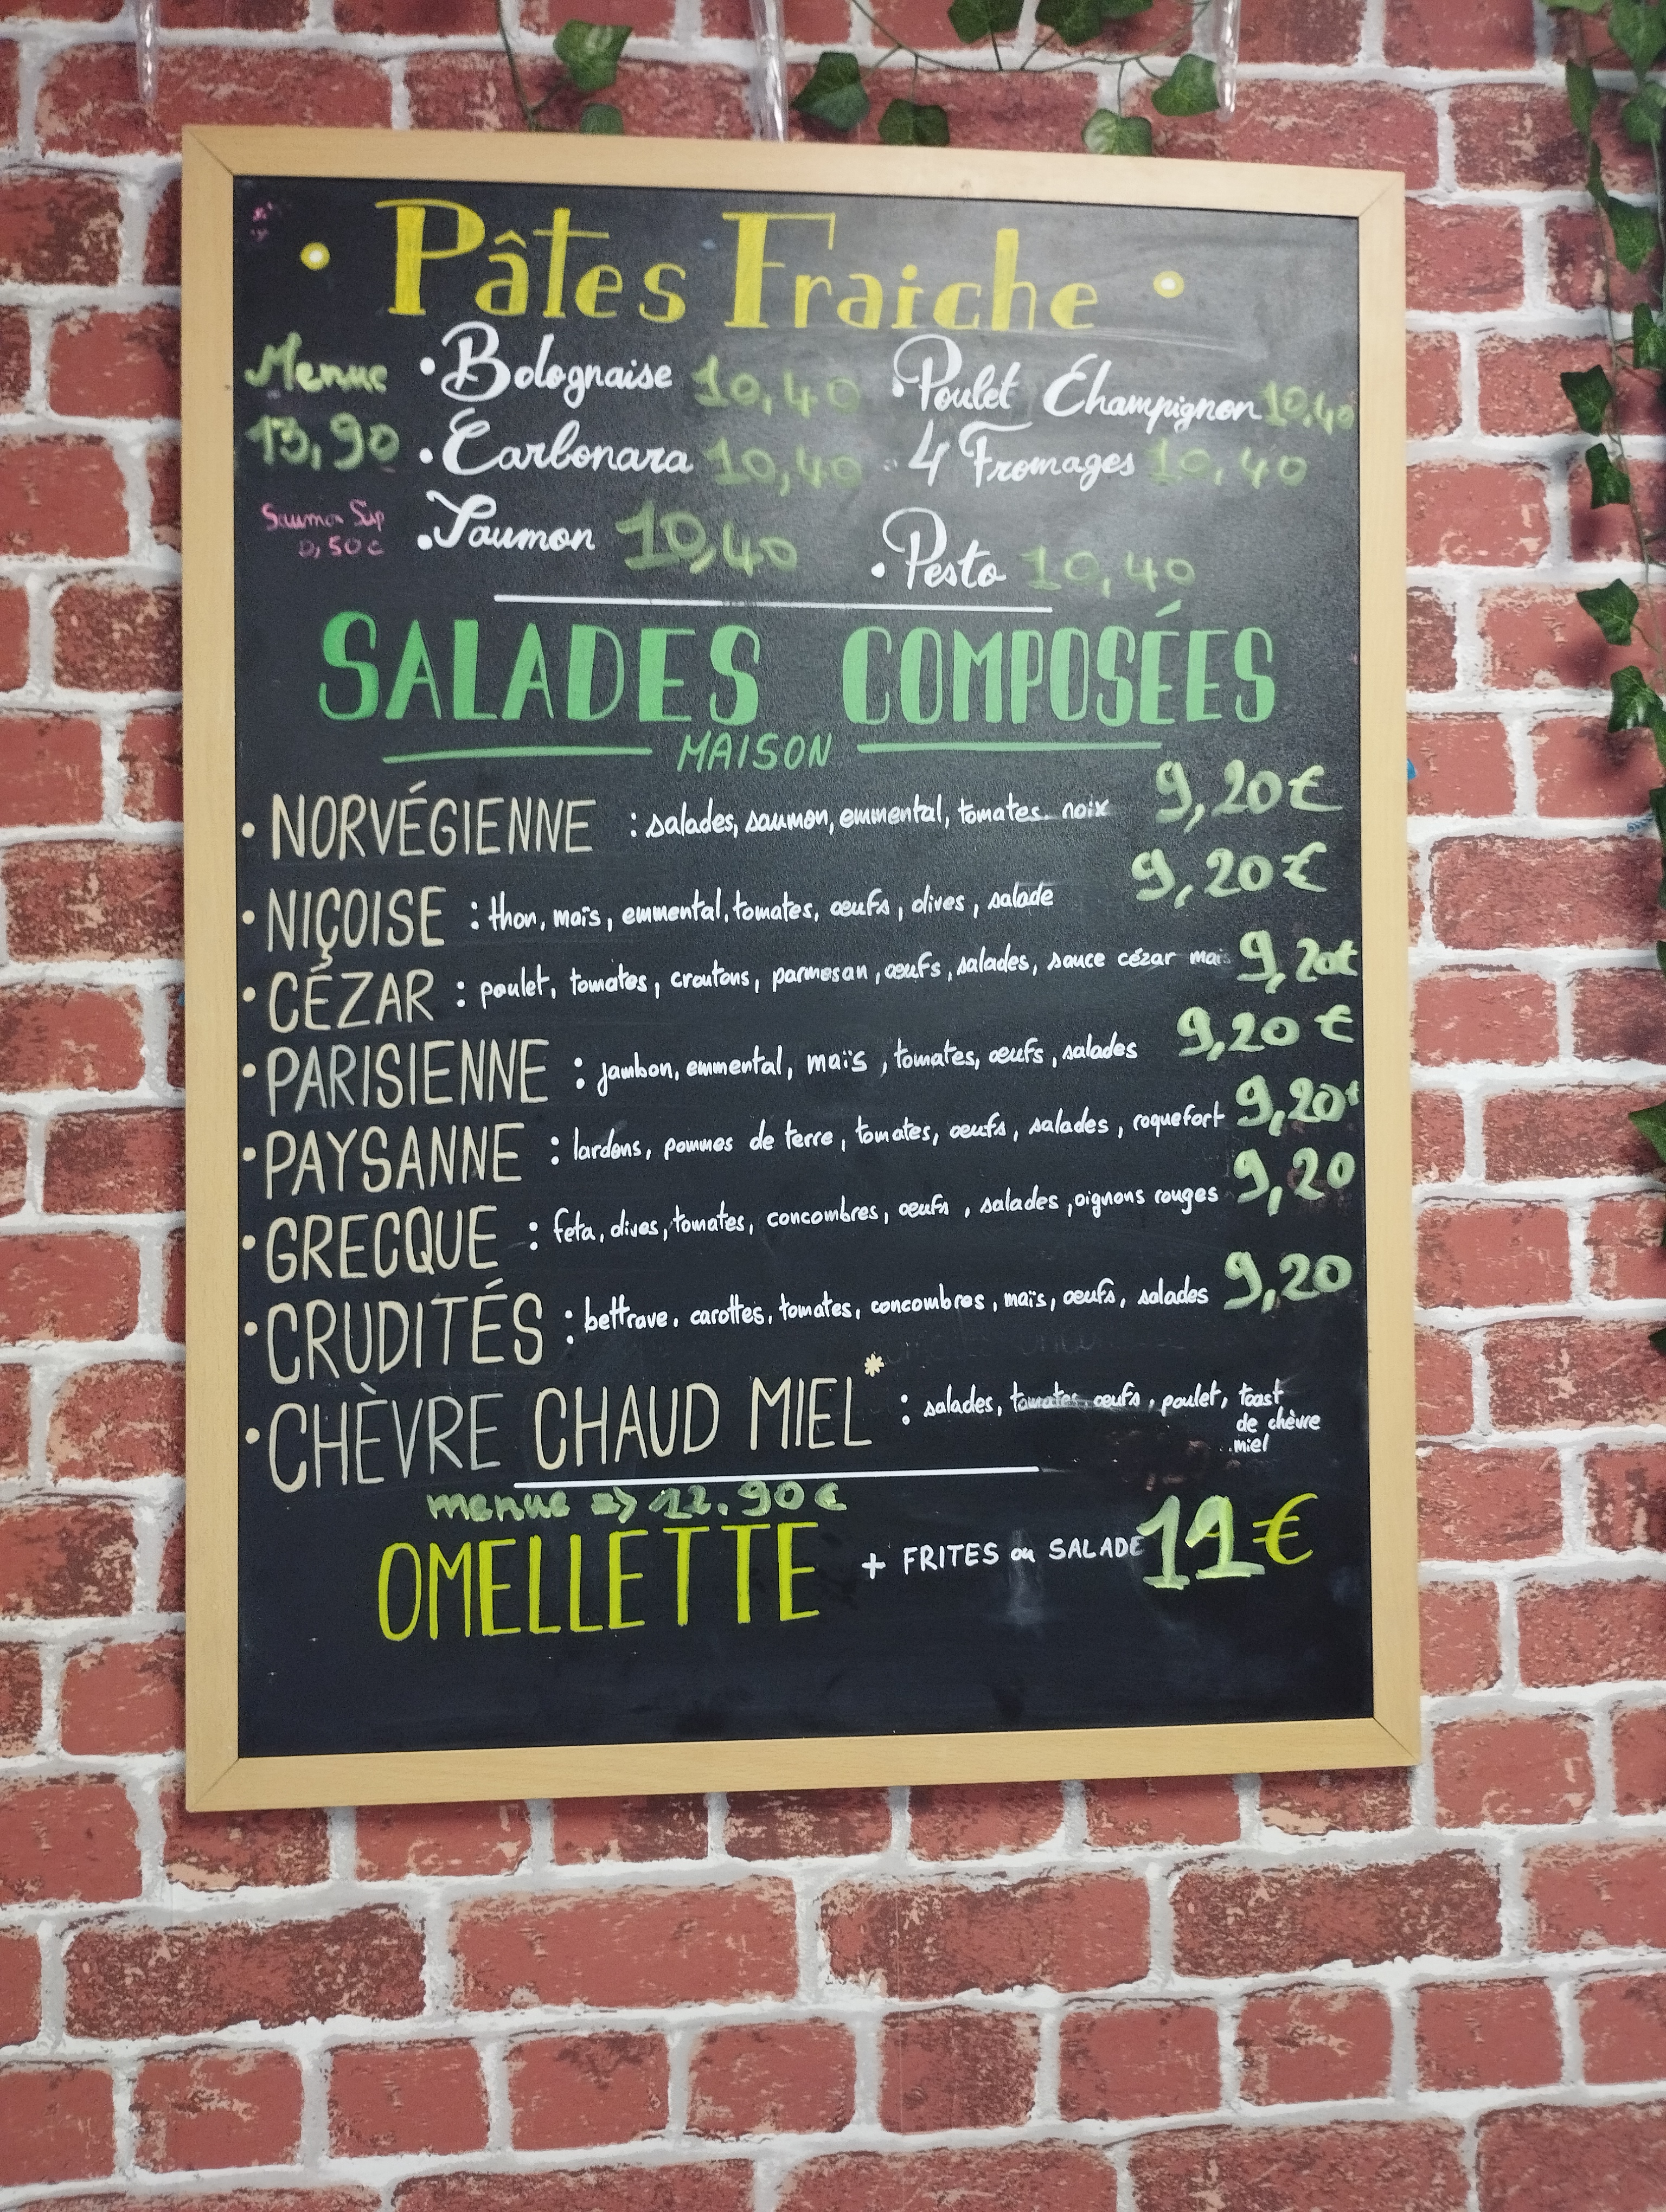 • Pâtes Fraiche •
Menue • Bolognaise 10,40 • Poulet Champignon 10,40
13,90 • Carbonara 10,40 • 4 Fromages 10,40
Saumon Sup • Saumon 10,40 • Pesto 10,40
0,50€
SALADES COMPOSÉES
MAISON
• NORVÉGIENNE : salades, saumon, emmental, tomates. noix 9,20€
• NIÇOISE : thon, maïs, emmental, tomates, œufs, olives, salade 9,20€
• CÉZAR : poulet, tomates, croutons, parmesan, œufs, salades, sauce cézar maïs 9,20€
• PARISIENNE : jambon, emmental, maïs, tomates, œufs, salades 9,20€
• PAYSANNE : lardons, pommes de terre, tomates, œufs, salades, roquefort 9,20€
• GRECQUE : feta, olives, tomates, concombres, œufs, salades, oignons rouges 9,20
• CRUDITÉS : bettrave. carottes, tomates, concombres, maïs, œufs, salades 9,20
• CHÈVRE CHAUD MIEL* : salades, tomates, œufs, poulet, toast
de chèvre
miel
menue => 12.90€
OMELLETTE + FRITES ou SALADE 11€